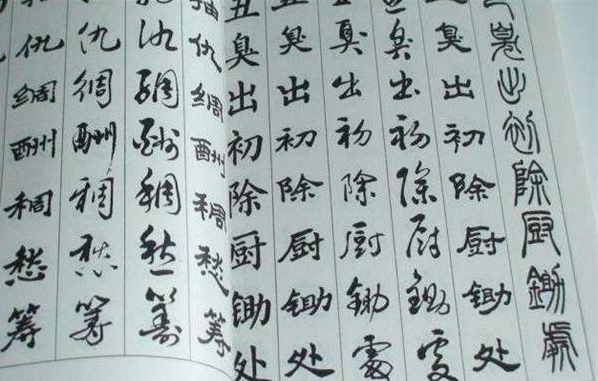 仇绸酬稠愁筹
仇绸酬稠愁筹
仇綢酬稠愁籌
抽仇绸酬稠愁筹
丑臭出初除厨锄处
臭出初除厨锄处
臭出初除厨锄處
臭出初除厨鋤處
臭出初除厨锄处
臭出初除厨鋤處